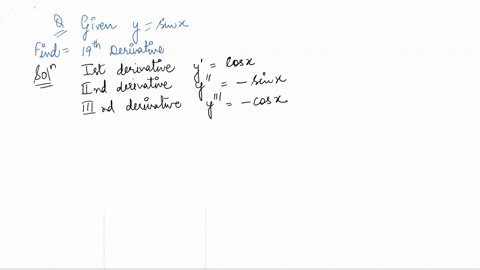 Q Given y = sinx
Find = 19th Derivative
Soln Ist derivative y' = cosx
IInd derivative y'' = - sinx
III rd derivative y''' = - cosx